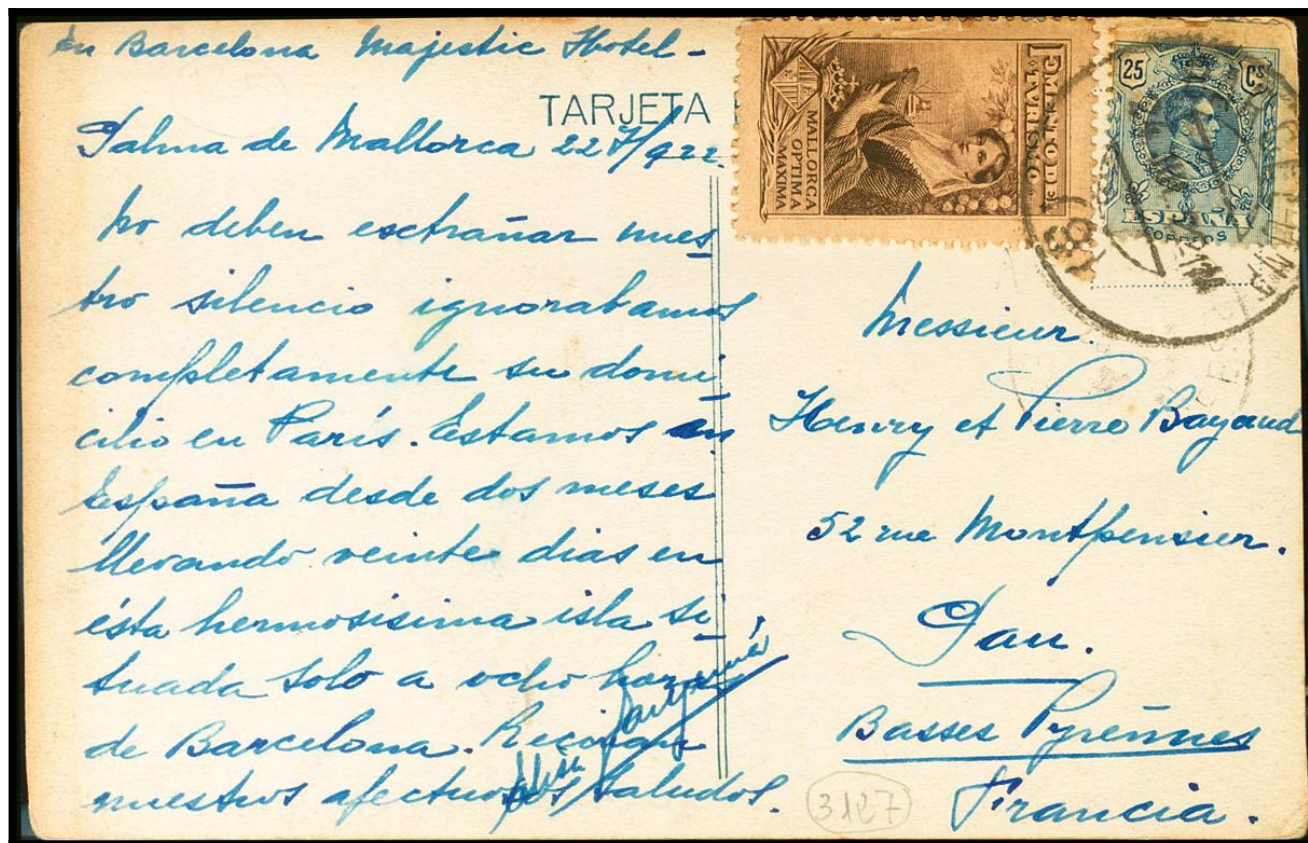 En Barcelona Majestic Hotel-
TARJETA
Palma de Mallorca 22 7/922
No deben esctrañar nues
tro silencio ignorabamos
completamente su domi
cilio en París. Estamos en
España desde dos meses
llevando veinte dias en
ésta hermosisima isla si
tuada solo a ocho horas
de Barcelona. Reciban
nuestros afectuosos saludos.
FOMENTO DE
TVRISMO
MALLORCA
OPTIMA
MAXIMA
25 Cs
ESPAÑA
CORREOS
Messieur.
Henry et Pierre Bayaud
52 rue Montpensier.
Pau.
Basses Pyreñnes
Francia.
3127